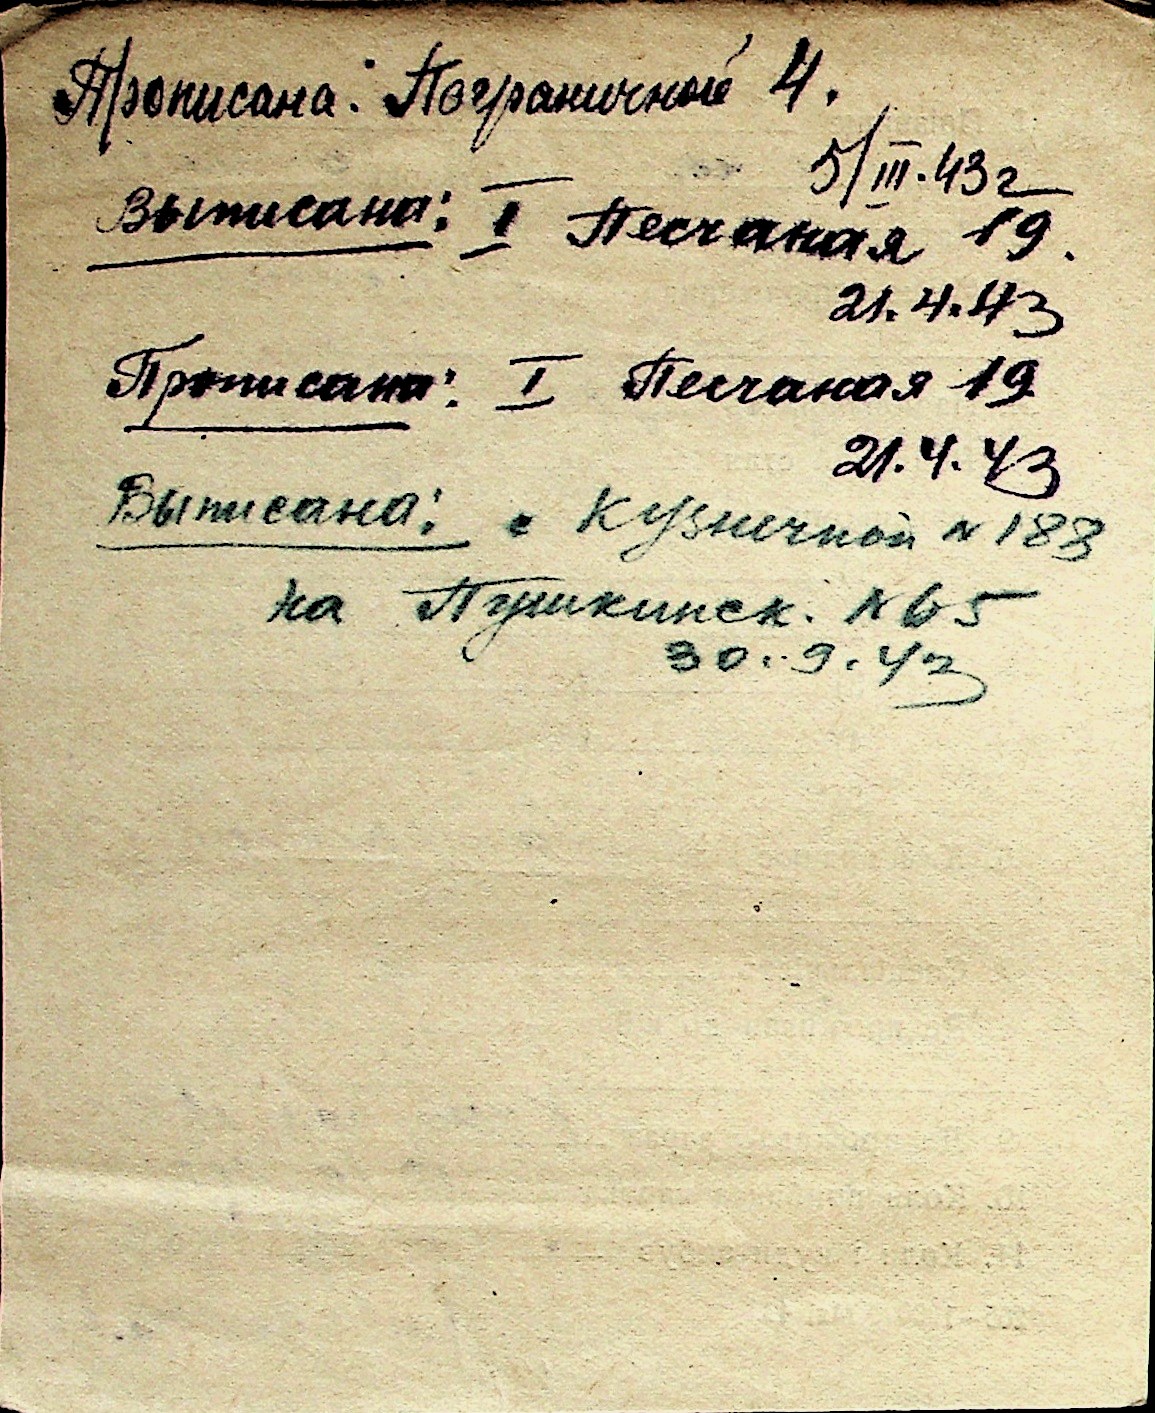 Прописана: Пограничной 4.
5/III.43г
Выписана: I Песчаная 19.
21.4.43
Прописана: I Песчаная 19
21.4.43
Выписана: с Кузничной № 183
на Пушкинск. № 65
30.9.43